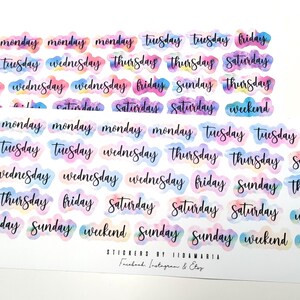 monday monday monday tuesday tuesday friday
tuesday wednesday thursday thursday thursday
wednesday wednesday friday sunday
saturday saturday weekend
monday monday monday tuesday tuesday
tuesday wednesday thursday thursday
wednesday wednesday friday sunday
friday saturday saturday
sunday weekend sunday sunday weekend
STICKERS BY IIDAMARIA
Facebook Instagram & Etsy